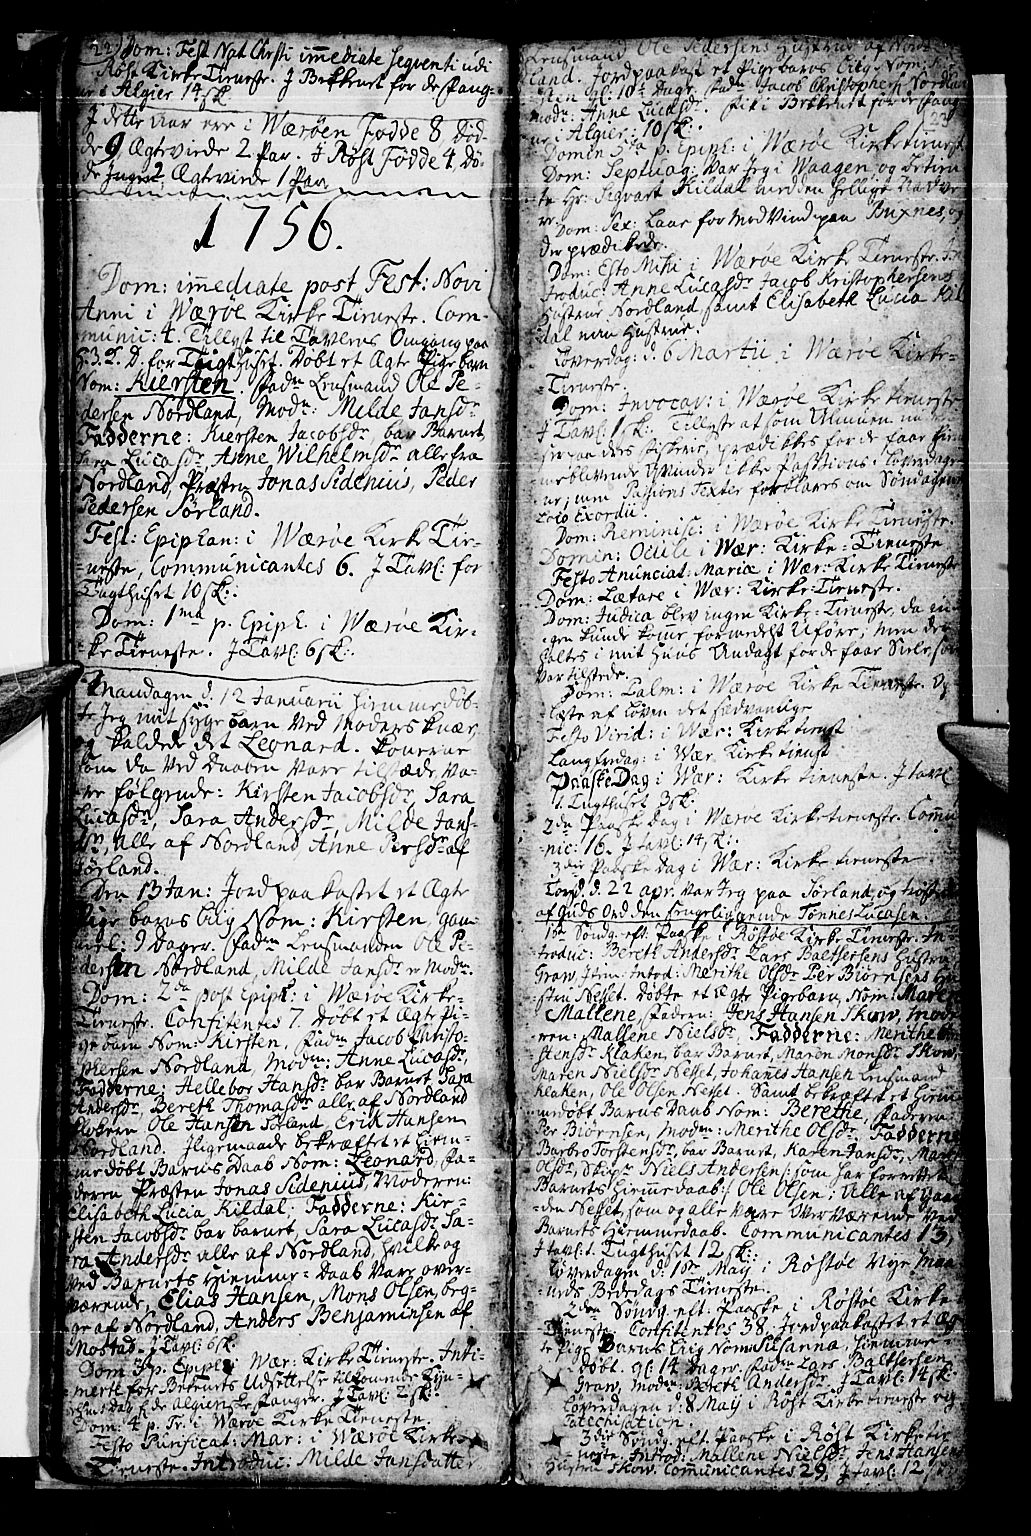 22) Dom: Fest Nat Christi immediate sequenti udi
Röst Kirke Tieneste. J Bekkenet for de Fang-
ne i Algier 14 sk
J dette Aar ere i Wærøen Fødde 8 Dö-
de 9 Ægteviede 2 Par. J Röst Födde 4, Dö-
de Ingen 2, Ægteviede 1 Par
1756.
Dom: immediate post Fest: Novi
Anni i Wærøe Kirke Tieneste. Com-
munic: 4. Tillyst til Tavlens Omgang paa
H. 3. K. D. for Tugthuset. Døbt et Ægte Pige barn
Nom: Kiersten. Fadn Lensmand Ole Pe-
dersen Nordland, Modn: Milde Jansdr
Fadderne: Kiersten Jacobsdr, bar Barnet,
Sara Lucasdr, Anne Wilhelmsdr alle fra
Nordland, Præsten Jonas Sidenius, Peder
Pedersen Sörland.
Fest: Epiphan: i Wærøe Kirke Tie-
neste, Communicantes 6. J Tavl: for
Tugthuset 10 sk:
Dom: 1ma p. Epiph: i Wærøe Kir-
ke Tieneste. J Tavl: 6 sk:
Mandagen d. 12 Januarii hiemmedöb-
te Jeg mit syge barn ved Moders knæ,
og kaldede det Leonard. Konerne
som da ved Daaben vare tilstæde, va-
re følgende: Kirsten Jacobsdr, Sara
Lucasdr, Sara Andersdr, Milde Jans-
dr, alle af Nordland, Anne Persdr af
Sörland.
Den 13 Jan: Jordpaakastet et Ægte
Pige barns Liig Nom: Kirsten, gam-
mel: 9 dager. Fadn Lensmanden Ole Pe-
dersen Nordland, Milde Jansdr er Modn.
Dom: 2da post Epiph: i Wærøe Kirke-
Tieneste. Confitentes 7. Døbt et Ægte Pi-
ge barn Nom: Kirsten, Fadn Jacob Christo-
phersen Nordland, Modn: Anne Lucasdr,
Fadderne: Hellebor Hansdr bar Barnet, Sara
Andersdr, Bereth Thomasdr alle af Nordland
Klokern Ole Hansen Sörland, Erik Hansen
Nordland. Jligemaade bekræftet et hiem-
medöbt Barns Daab Nom: Leonard, Fa-
deren Præsten Jonas Sidenius, Moderen:
Elisabeth Lucia Kildal, Fadderne: Kir-
sten Jacobsdr bar barnet, Sara Lucasdr, Sa-
ra Andersdr alle af Nordland, hvilke og
ved Barnets Hiemme-Daab vare over-
værende, Elias Hansen, Mons Olsen, beg-
ge af Nordland, Anders Benjaminsen af
Mostad. J Tavl: 6 sk:
Dom: 3 p. Epiph: i Wær: Kirke Tieneste. Inti-
merte for Bekkenets Udsættelse tilkommende Kyn-
delmis dag for de Algierske Fanger. J Tavl: 2 sk:
Dom: 4 p. Tr. i Wærøe Kirke Tieneste.
Festo Purificat: Mar: i Wærøe Kirke
Tieneste. Introduc: Milde Jansdatter
Lensmand Ole Pedersens Hustrue af Nord-
land. Jordpaakast et Pigebarns Liig Nom: Kir-
sten gl. 10 Dage, Fadn Jacob Christophers: Nordland
Modn: Anne Lucasdr. J Bekkenet for de Fang-
ne i Algier: 10 sk:
(23
Domin 5ta p. Epiph: i Wærøe Kirketieneste
Dom: Septuag: var Jeg i Waagen og betien-
te Hr: Sigvart Kildal med den hellige Nadve-
re.
Dom: Sex: Laae for Mod Vind paa Buxnes, og
der prædikede.
Dom: Esto Mihi i Wærøe Kirke Tieneste. In-
troduc: Anne Lucasdr Jacob Kristophersens
Hustrue Nordland samt Elisabeth Lucia Kil-
dal min Hustrue.
Löverdag: d. 6 Martii i Wærøe Kirke-
Tieneste.
Dom: Invocav: i Wærøe Kirke tieneste
J Tavl: 1 sk: Tillyste at som Almuen nu rei-
ser paa deres fiskerie, prædikkes for de faae hiem-
meblevende qvinder ikke Passions i Löverdage-
ne; men Passions Texter forklares om Söndagene
Loco Exordii.
Dom: Reminisc: i Wærøe Kirke Tieneste.
Domin: Oculi i Wær: Kirke-Tieneste
Festo Anunciat: Mariæ i Wær: Kirke Tieneste
Dom: Lætare i Wær: Kirke-Tieneste.
Dom: Judica blev ingen Kirke-Tieneste, da in-
gen kunde komme formedelst Uføre; men der
holtes i mit Huus Andagt for de faae Siele som
var tilstæde.
Dom: Palm: i Wærøe Kirke Tieneste. Op-
læste af Loven det sædvanlige
Festo Virid: i Wær: Kirke tienest
Langfredag: i Wær Kirke tienest
Paaske Dag i Wær: Kirke tieneste. J tavl
t. Tugthuset 3 sk:
2den Paaske dag i Wærøe Kirketieneste. Comu-
nic: 16. J tavl: 14 sk:
3die Paaske Dag i Wær: Kirke tieneste.
Torsd: d. 22 apr: var Jeg paa Sörland, og tröstede
af Guds Ord den sengeliggende Tönnes Lucasen.
1te Söndg. eft. Paaske i Röstöe Kirke Tieneste. In-
troduc: Bereth Andersdr Lars Balthersens Hustru
Graw, Item: Introd: Merithe Olsdr Per Biörnsens Hu-
stru Nesset. Døbte et Ægte Pigebarn, Nom: Maren
Mallene, Faderen: Jens Hansen Skow, Mode-
ren: Mallene Nielsdr, Fadderne: Merithe
stensdr Klaken, bar Barnet, Maren Monsdr Skow,
Maren Nielsdr Nesset, Johanes Hansen Lensmand
Klaken, Ole Olsen Nesset. Samt bekræftet et hiem-
medöbt Barns Daab Nom: Berethe, Faderen:
Per Biörnsen, Modn: Merithe Olsdr. Fadderne
Barbro Torstensdr, bar Barnet, Karen Jansdr, Marit
Olsdr, Niels Andersen: som har forrettet
Barnets hiemmedaab: Ole Olsen: Alle af gaar-
den Nesset, som og alle vare Overværende ved
Barnets Hiemmedaab. Communicantes 13,
J tavl: t. Tugthuset 12 sk:
Löverdagen d: 1te Maij i Röstöe Nye Maa-
neds Bededags Tieneste.
2den Söndg. eft. Paaske, i Röstöe Kirke-
Tieneste. Confitentes 38. Jordpaakastet et Æg-
te Pige Barns Liig Nom: Susanna, hiemme-
döbt gl: 14 Dager, Fadn Lars Balthersen
Graw, Modn Bereth Andersdr. J Tavl: 14 sk:
Löverdagen d: 8 Maij i Röst Kirke tieneste og
Catechisation.
3die Söndg. eft. Paaske i Röst Kirke tie-
neste. Introd: Mallene Nielsdr Jens Hansens
Hustru Skow. Comunicantes 29, J tavl: 12 sk